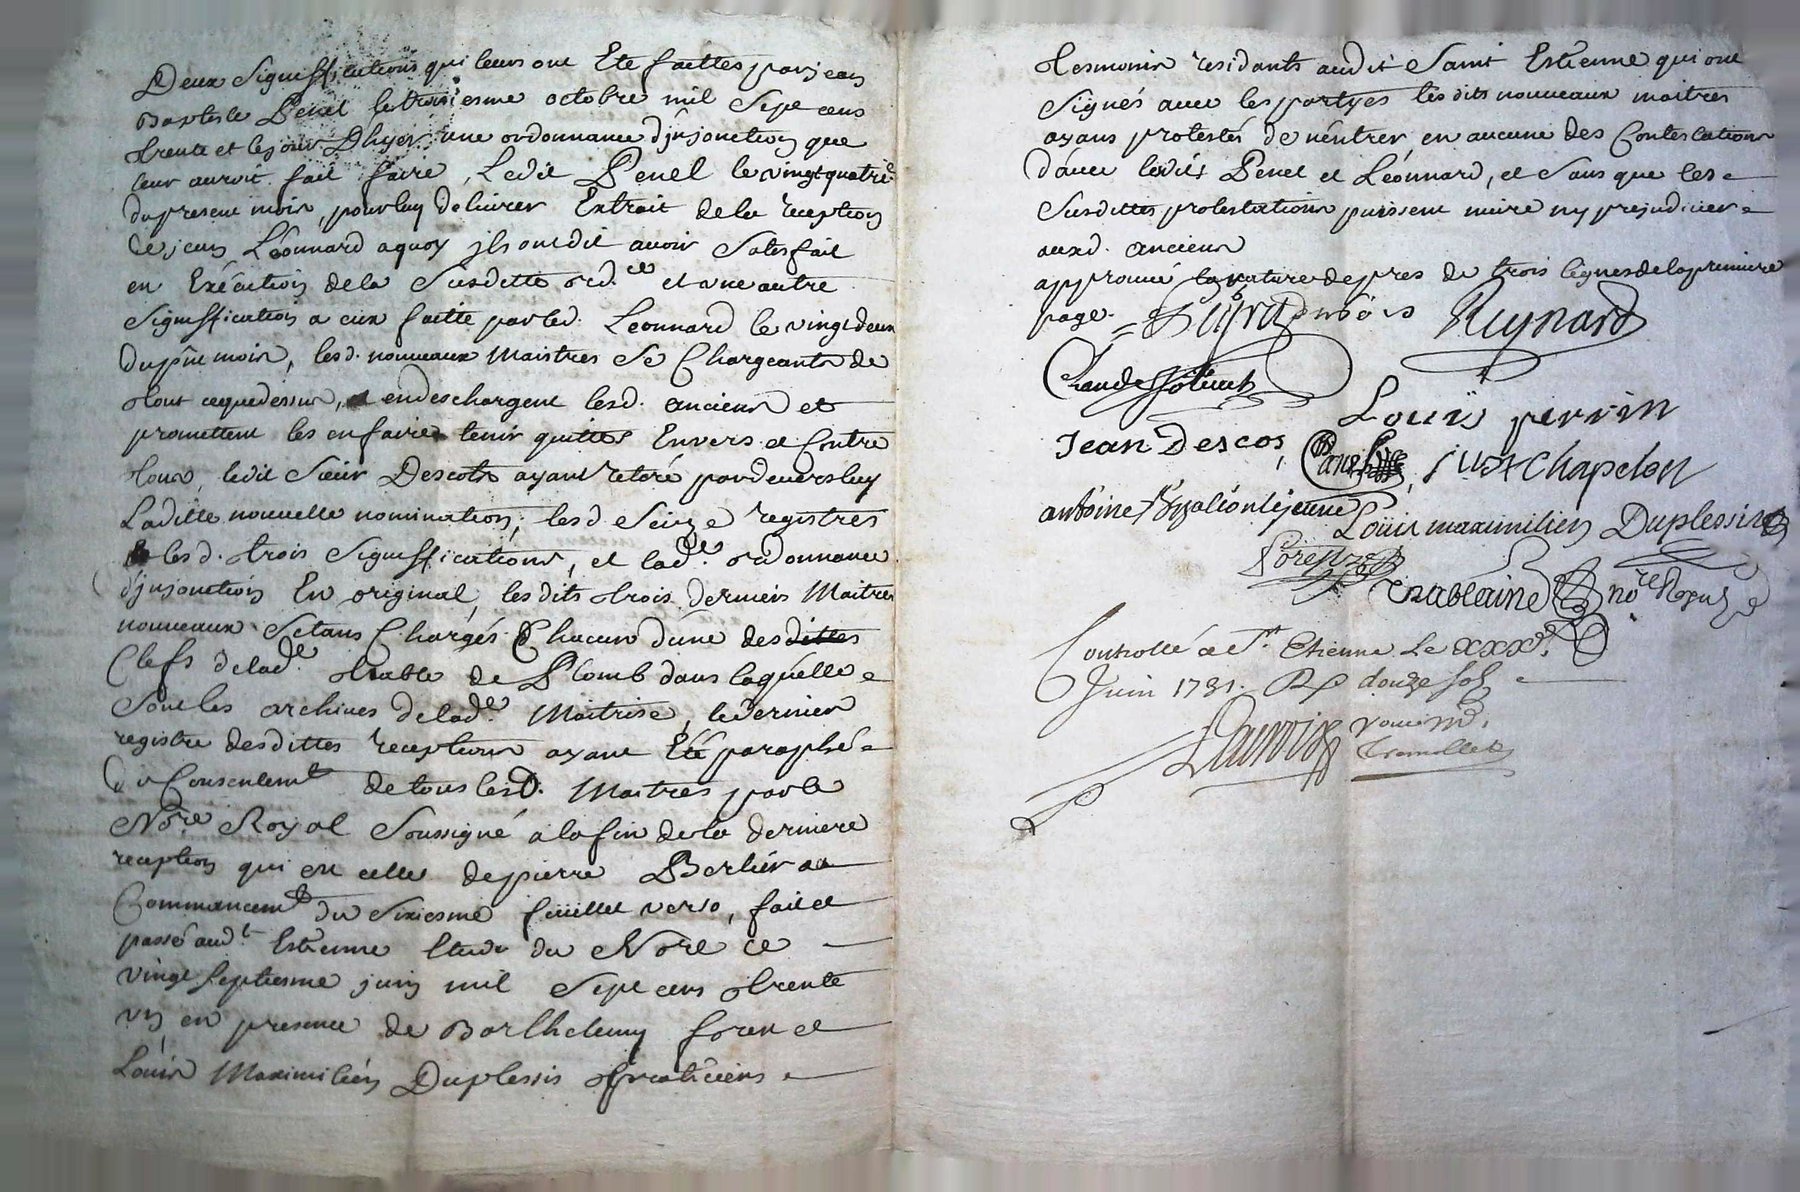 Deux Signiffications qui leurs ont Eté faittes par jean
Baptiste Penel le troisiesme octobre mil Sept cens
trente et le jour Dhyer, une ordonnance d'jnjonction que
leur auroit fait faire, Ledit Penel le vingt quatrie
du present mois, pour luy delivrer Extrait de la reception
de jean Léonnard a quoy jls ont dit avoir Satisfait
en Exécution de la Susditte ord.ce et une autre
Signiffication a eux faitte par led. Leonnard le vingt deux
du pnt mois, lesd. nouveaux Maistres Se Chargeants de
tout ce que dessus, en deschargent lesd. anciens et
promettent les en faire tenir quittes Envers et Contre
tous, ledit Sieur Descots ayant retiré par devers luy
Laditte nouvelle nomination, lesd Seize registres
lesd. trois Signiffications, et lad.e ordonnance
d'jnjonction En original, les dits trois derniers Maitres
nouveaux S'etans Chargés Chacun d'une des dittes
Clefs de lad.e table de Plomb dans laquelle
Sont les archives de lad.e Maitrise, le dernier
registre desdittes receptions ayant Eté paraphé
du Consentem.t de tous lesd. Maitres par le
No.re Royal Soussigné a la fin de la derniere
reception qui est celle de pierre Berlier au
Commancem.t du Sixiesme feüillet verso, fait et
passé aud.t Estienne Etude du No.re ce
vingt septiesme juin mil Sept cens trente
un en presence de Barthelemy foren et
Loüis Maximilien Duplessis praticiens
tesmoins residants audit Saint Estienne qui ont
Signés avec les partyes les dits nouveaux maitres
ayans protestés de n'entrer en aucune des Contestations
d'avec lesdits Penel et Léonnard, et Sans que les
Susdittes protestations puissent nuire ny prejudicier
auxd. anciens
approuvé la rature de pres de trois lignes de la premiere
page. Dubois Reynard
Claude
Loüis perrin
Jean Descos, Just Chapelon
antoine lejeune
Loüis maximilien Duplessis
forest
Chableaine no.re Royal
Controllé a St. Etienne Le xxx.e
Juin 1731. R. douze sols